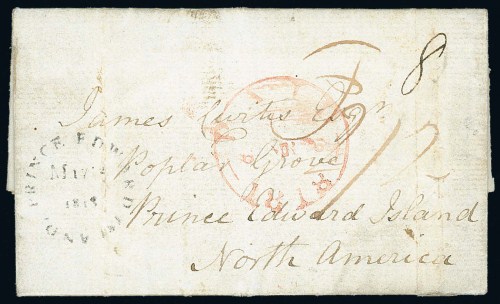 8
James Curtis Esqr
Poplar Grove
Prince Edward Island
North America
PRINCE EDWARD ISLAND